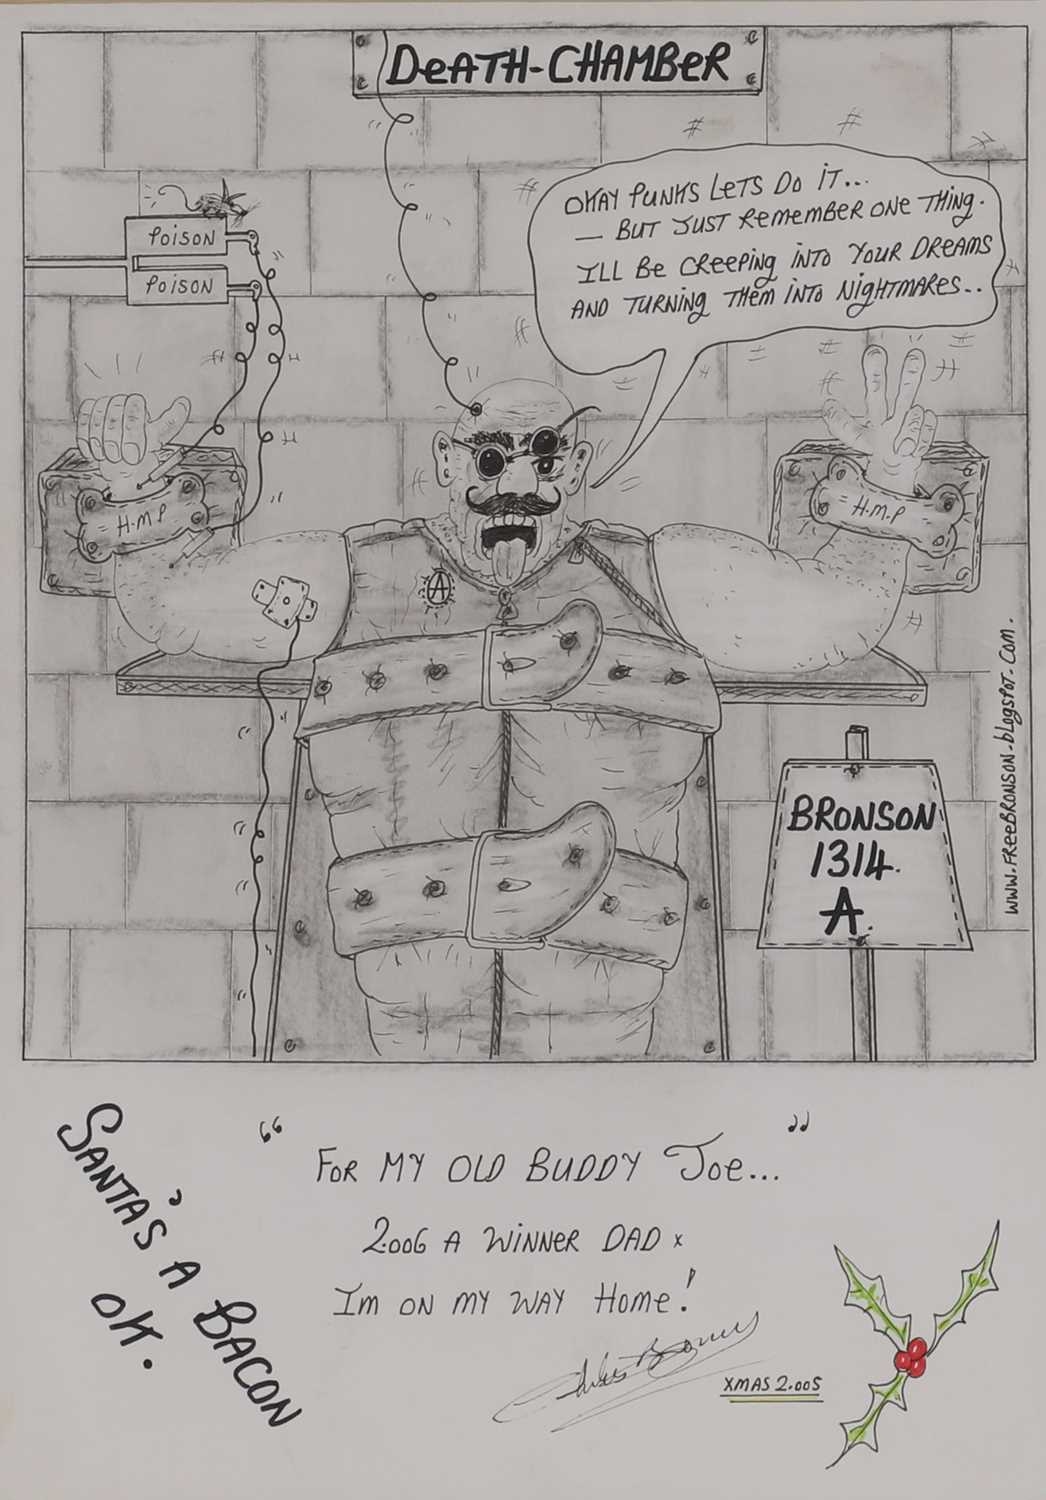 DEATH-CHAMBER
OKAY PUNKS LETS DO IT...
— BUT JUST REMEMBER ONE THING.
ILL BE CREEPING INTO YOUR DREAMS
AND TURNING THEM INTO NIGHTMARES..
POISON
POISON
H.M.P
H.M.P
A
BRONSON
1314.
A.
WWW.FREEBRONSON.blogspot.com.
“ FOR MY OLD BUDDY JOE... ”
2.006 A WINNER DAD x
I'M ON MY WAY HOME!
Charles Bronson
XMAS 2.005
SANTA'S A BACON
OK.